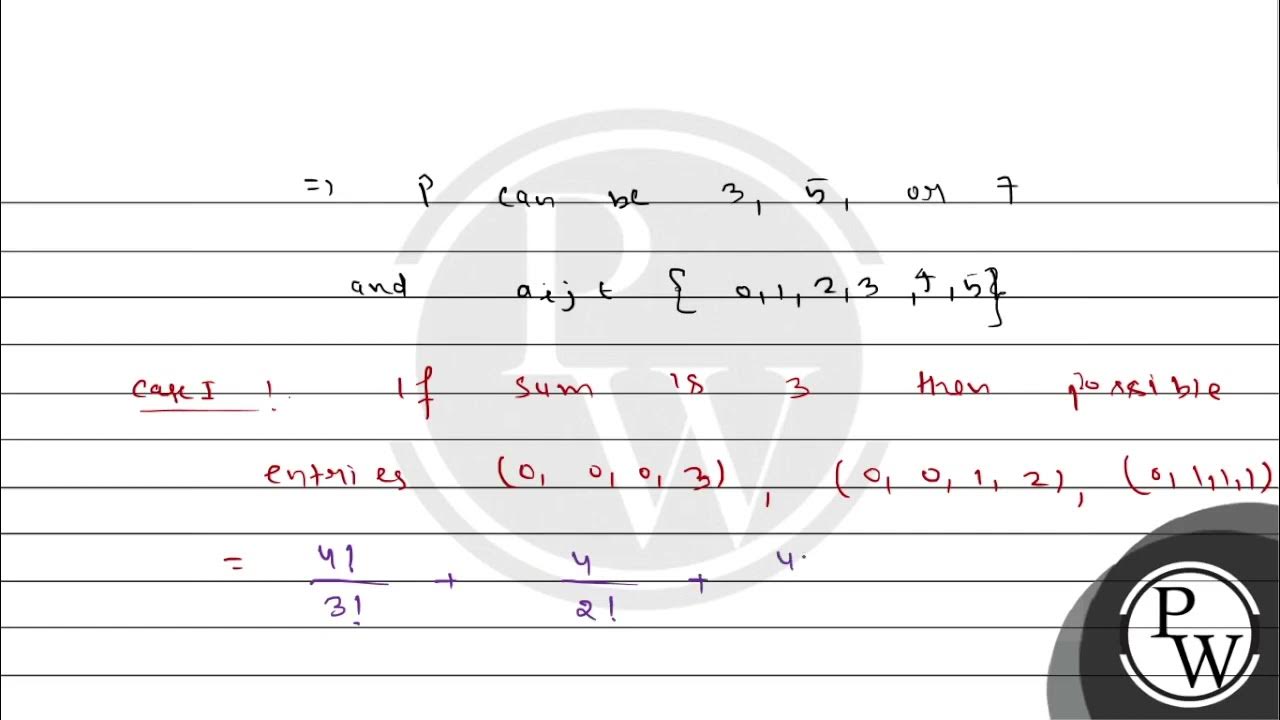 => P can be 3, 5, or 7
and aij ∈ { 0,1,2,3,4,5}
Case I : If sum is 3 then possible
entries (0, 0, 0, 3), (0, 0, 1, 2), (0,1,1,1)
= 4!/3! + 4/2! + 4
P
W
P
W